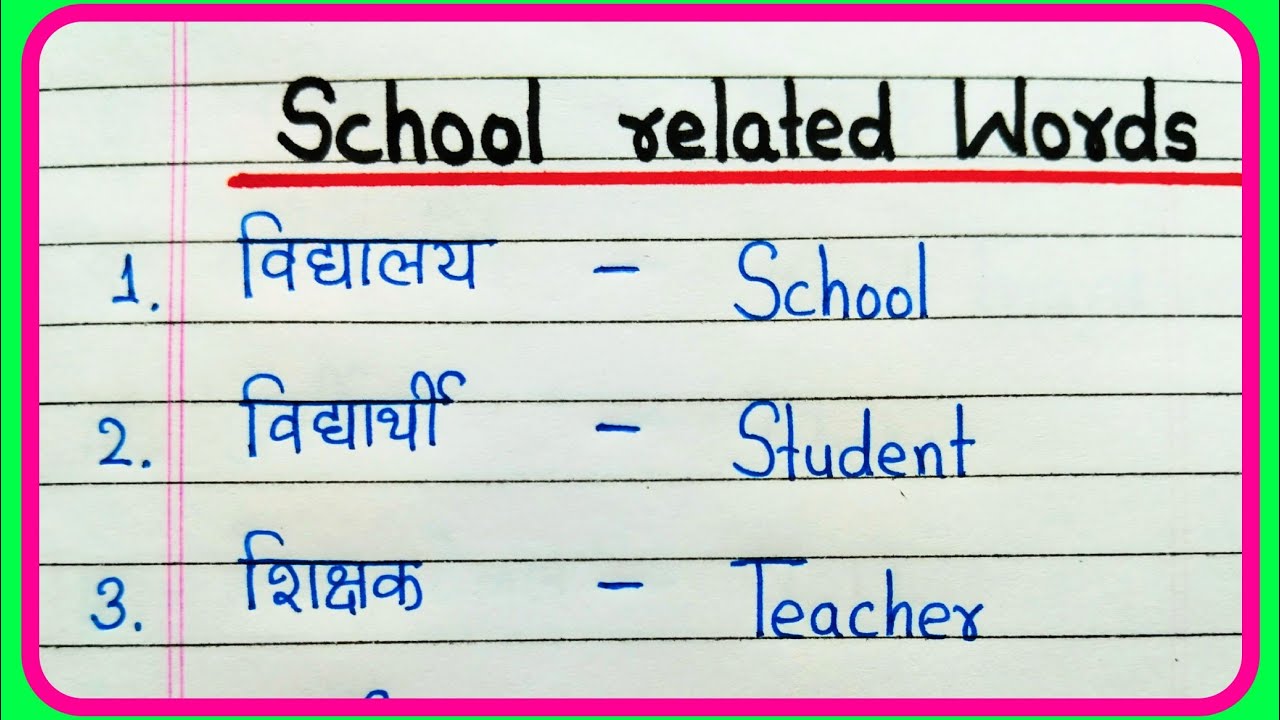 School related Words
1. विद्यालय - School
2. विद्यार्थी - Student
3. शिक्षक - Teacher